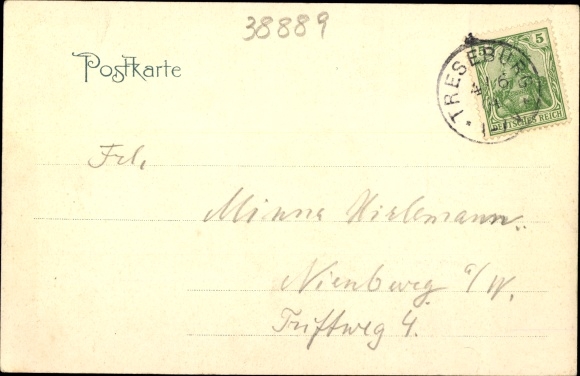 38889
Postkarte
5 5
TRESEBURG
DEUTSCHES REICH
Frl.
Minna Hielemann.
Nienburg a/W.
Triftweg 4.